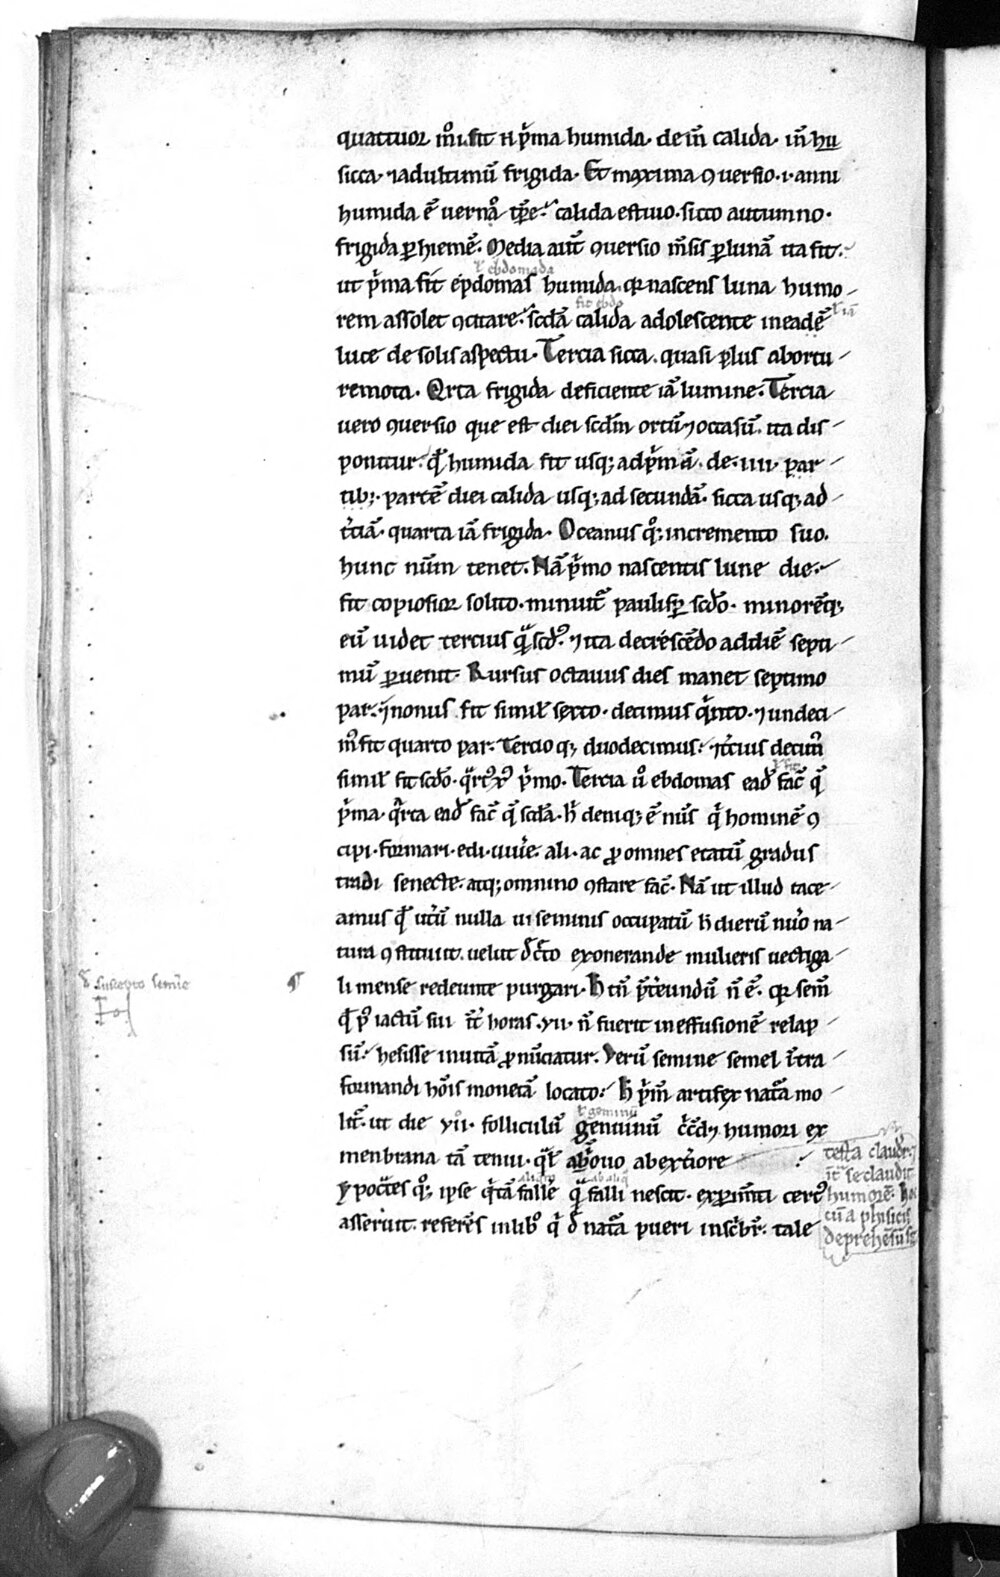 quattuor m̊i. fit ⁊ p̾ma humida. dein̄ calida. in̄ hu
sicca. ⁊ adultimū frigida. Et maxima ꝯuersio .i. anni
humida ē uerno tp̄e. calida estiuo. sicco autumno.
frigida ꝑ hiemē. Media aut̄ ꝯuersio m̄sis ꝑ lunā ita fit.
ł ebdomada
ut p̾ma sit epdomas humida. qr nascens luna humo
fit ebdo
rem assolet ꝯcitare. scdā calida adolescente in eadē
ł iā
luce de solis aspectu. Tercia sicca. quasi plus abortu
remota. Qrta frigida deficiente iā lumine. Tercia
uero ꝯuersio que est diei scdm̄ ortū ⁊ occasū. ita dis
ponitur. qđ humida sit usq; ad p̾mā. de .iiii. par
tib;. partē diei calida usq; ad secundā. sicca usq; ad
t̾ciā. quarta iā frigida. Oceanus qº; incremento suo.
hunc num̄ tenet. Nā p̾mo nascentis lune die.
fit copiosior solito. minuit̄ paulisꝑ scdo. minorēq;
eū uidet tercius qͣ scds. ⁊ ita decrescēdo ad diē septi
mū ꝑuenit. Rursus octauus dies manet septimo
par. ⁊ nonus fit simił sexto. decimus q̾nto. ⁊ undeci
m̊ fit quarto par. Tercio q; duodecimus. ⁊ t̾cius decim̄
simił fit scdo. qͣrt' x' p̾mo. Tercia ů ebdomas eađ fac̄ q̄
ł fit
p̾ma. qͣrta eađ fac̄ q̄ scda. h̾ deniq; ē nūs q̾ hominē ꝯ
cipi. formari. edi. uiu̾e. ali. ac ꝓ omnes etatū gradus
tradi senecte. atq; omnino ꝯstare fac̄. Nā ut illud tace
amus qđ ut̾ū nulla ui seminis occupatū h̾ dierū nūo na
tura ꝯstituit. uelut đcto exonerande mulieris uectiga
ł suscepto semīe
li mense redeunte purgari. h̾ tn̄ p̾t̾eundū n̄ ē. qr sem̄
qđ p̊ iactū sui int̾ horas .vii. n̄ fuerit in effusionē relap
sū. hesisse in uitā ꝓnūciatur. Verū semine semel int̾a
formandi hōis monetā locato. h̾ p̾m̄ artifex natͣa mo
lit̄. ut die vii. folliculū genuinū c̾cūdz humori ex
ł geminū
menbrana tā tenui. qͣl̄ ab ouo ab ext̾iore
testa claudit̄ ⁊
int̄ se claudit
humorē. hoc
cū a phisicis
deprehēsū sit
ypoctēs qº; ipse q̾ tā fallē qͣ falli nescit. exp̾imti cert'
aliq̄
ab aliq̊
asseruit. referēs in lib' q̾ đ natͣa pueri inscbr̄. tale